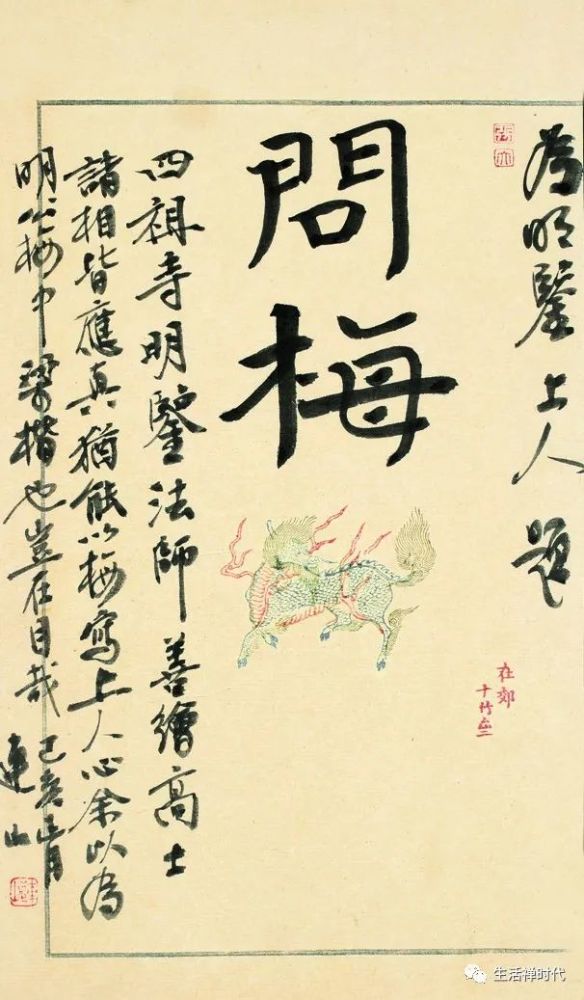 為明鑒上人題
問梅
四祖寺明鑒法師善繪高士
諸相皆應真猶能以梅寫上人心余以為
明公梅中梁楷也豈在目哉 己亥正月
連山
在郊
十竹斋
生活禅时代